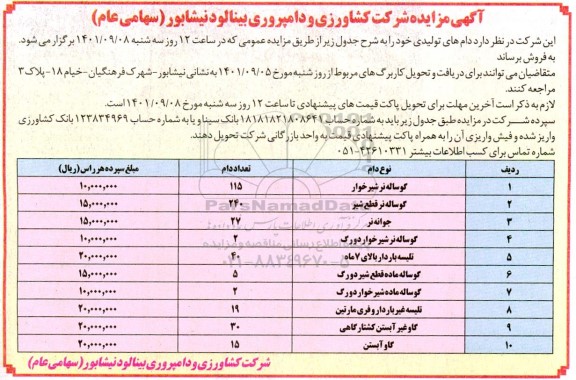 آگهی مزایده شرکت کشاورزی و دامپروری بینالود نیشابور (سهامی عام)
این شرکت در نظر دارد دام های تولیدی خود را به شرح جدول زیر از طریق مزایده عمومی که در ساعت ۱۲ روز سه شنبه ۱۴۰۱/۰۹/۰۸ برگزار می شود.
به فروش برساند
متقاضیان می توانند برای دریافت و تحویل کاربرگ های مربوط از روز شنبه مورخ ۱۴۰۱/۰۹/۰۵ به نشانی نیشابور-شهرک فرهنگیان-خیام ۱۸-پلاک ۳
مراجعه کنند.
لازم به ذکر است آخرین مهلت برای تحویل پاکت قیمت های پیشنهادی تا ساعت ۱۲ روز سه شنبه مورخ ۱۴۰۱/۰۹/۰۸ است.
سپرده شرکت در مزایده طبق جدول زیر باید به شماره حساب بانک سینا و یا به شماره حساب ۱۲۳۸۳۴۹۶۹ بانک کشاورزی
واریز شده و فیش واریزی آن را به همراه پاکت پیشنهادی قیمت به واحد بازرگانی شرکت تحویل دهند.
شماره تماس برای کسب اطلاعات بیشتر ۴۲۶۱۰۳۳۱-۰۵۱
ردیف نوع دام تعداد دام مبلغ سپرده هر راس (ریال)
۱ گوساله نر شیرخوار ۱۱۵ ۱۰,۰۰۰,۰۰۰
۲ گوساله نر قطع شیر ۲۴۰ ۱۵,۰۰۰,۰۰۰
۳ جوانه نر ۲۷ ۱۵,۰۰۰,۰۰۰
۴ گوساله نر شیرخوار دورگ ۲ ۱۰,۰۰۰,۰۰۰
۵ تلیسه باردار بالای ۷ ماه ۴۰ ۲۰,۰۰۰,۰۰۰
۶ گوساله ماده قطع شیر دورگ ۵ ۱۵,۰۰۰,۰۰۰
۷ گوساله ماده شیرخوار دورگ ۲ ۱۰,۰۰۰,۰۰۰
۸ تلیسه غیر باردار و فری مارتین ۱۹ ۲۰,۰۰۰,۰۰۰
۹ گاو غیر آبستن کشتارگاهی ۳۰ ۲۰,۰۰۰,۰۰۰
۱۰ گاو آبستن ۱۵ ۲۰,۰۰۰,۰۰۰
شرکت کشاورزی و دامپروری بینالود نیشابور (سهامی عام)
ParsNamadData
۰۲۱-۸۸۳۴۹۶۷۰-۵